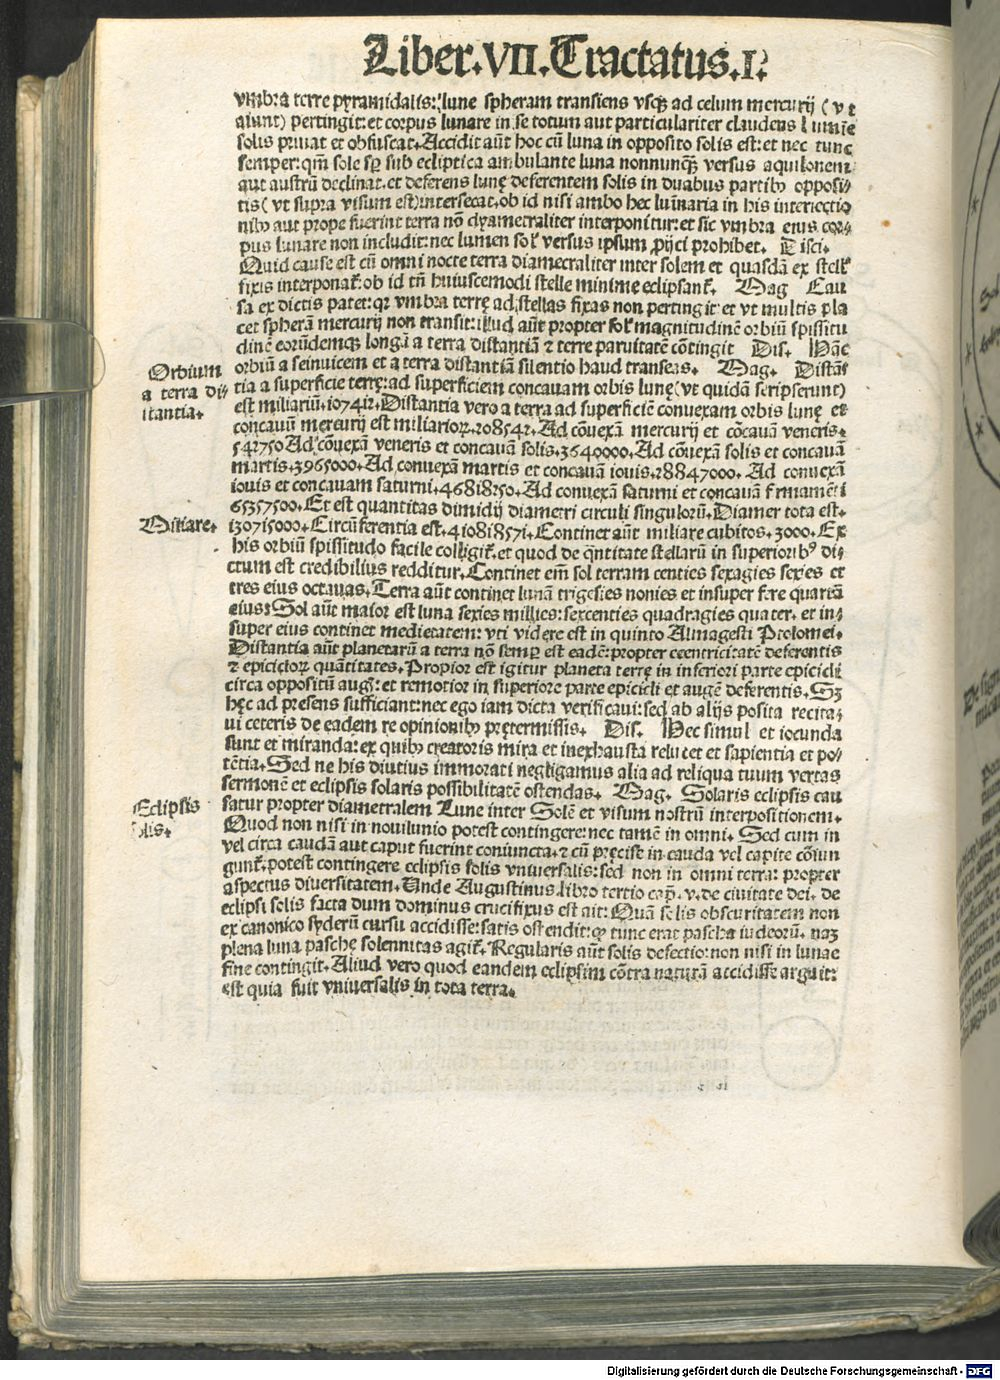 Liber.VII.Tractatus.I.
vmbra terre pyramidalis: lune spheram transiens vsq̃ ad celum mercurij (vt
aiunt) pertingit: et corpus lunare in se totum aut particulariter claudens lumīe
solis priuat et obfuscat. Accidit aūt hoc cū luna in opposito solis est: et nec tunc
semper: qm̄ sole sp̱ sub ecliptica ambulante luna nonnunq̃ versus aquilonem
aut austrū declinat. et deferens lunę deferentem solis in duabus partibꝰ opposi-
tis (vt supra visum est) intersecat. ob id nisi ambo hec luīnaria in his intersectio
nibꝰ aut prope fuerint terra nō dyametraliter interponitur: et sic vmbra eius cor-
pus lunare non includit: nec lumen sol̕ versus ipsum ꝓijci prohibet. Disci.
Quid cause est cū omni nocte terra diametraliter inter solem et quasdā ex stell̕
fixis interponat̕: ob id tn̄ huiuscemodi stelle minime eclipsant̕. Mag Cau
sa ex dictis patet: qr vmbra terrę ad stellas fixas non pertingit et vt multis pla
cet spherā mercurij non transit: illud aūt propter sol̕ magnitudinē orbiū spissitu
dinē eorūdemq̃ longā a terra distantiā ⁊ terre paruitatē cōtingit Dis. Hāc
orbiū a seinuicem et a terra distantiā silentio haud transeas. Mag. Distāɫ
tia a superficie terrę: ad superficiem concauam orbis lunę (vt quidā scripserunt)
est miliariū.107412. Distantia vero a terra ad superficiē conuexam orbis lunę et
concauū mercurij est miliarioꝝ.208542. Ad cōuexā mercurij et cōcauā veneris.
542750 Ad cōuexā veneris et concauā solis.3640000. Ad cōuexā solis et concauā
martis.3965000. Ad conuexā martis et concauā iouis.28847000. Ad conuexā
iouis et concauam saturni.46818250. Ad conuexā saturni et concauā firmamēti
65357500. Et est quantitas dimidij diametri circuli singulorū. Diameter tota est.
130715000. Circūferentia est.410818571. Continet aūt miliare cubitos.3000. Ex
his orbiū spissitudo facile colligit̕. et quod de q̄ntitate stellarū in superioribꝰ di-
ctum est credibilius redditur. Continet em̄ sol terram centies sexagies sexies et
tres eius octauas. Terra aūt continet lunā trigesies nonies et insuper fere quartā
eius: Sol aūt maior est luna sexies millies: sexcenties quadragies quater. et in-
super eius continet medietatem: vti videre est in quinto Almagesti Ptolomei.
Distantia aūt planetarū a terra nō semꝑ est eadē: propter eccentricitatē deferentis
⁊ epicicloꝝ quātitates. Propior est igitur planeta terrę in inferiori parte epicicli
circa oppositū aug̕: et remotior in superiore parte epicicli et augē deferentis. Sꝫ
hęc ad presens sufficiant: nec ego iam dicta verificaui: sed ab alijs posita recita-
ui ceteris de eadem re opinionibꝰ prętermissis. Dis. Hec simul et iocunda
sunt et miranda: ex quibꝰ creatoris mira et inexhausta relucet et sapientia et po-
tētia. Sed ne his diutius immorati negligamus alia ad reliqua tuum vertas
sermonē et eclipsis solaris possibilitatē ostendas. Mag. Solaris eclipsis cau
satur propter diametralem Lune inter Solē et visum nostrū interpositionem.
Quod non nisi in nouilunio potest contingere: nec tamē in omni. Sed cum in
vel circa caudā aut caput fuerint coniuncta. ⁊ cū pręcise in cauda vel capite cōiun
gunt̕. potest contingere eclipsis solis vniuersalis: sed non in omni terra: propter
aspectus diuersitatem. Unde Augustinus libro tertio cap̄. v. de ciuitate dei. de
eclipsi solis facta dum dominus crucifixus est ait: Quā solis obscuritatem non
ex canonico syderū cursu accidisse: satis ostendit: ꝙ tunc erat pascha iudeorū. naꝫ
plena luna paschę solennitas agit̕. Regularis aūt solis defectio: non nisi in lunae
fine contingit. Aliud vero quod eandem eclipsim cōtra naturā accidisse arguit:
est quia fuit vniuersalis in tota terra.
Orbium
a terra di-
stantia.
Miliare.
Eclipsis
solis.
Digitalisierung gefördert durch die Deutsche Forschungsgemeinschaft - DFG